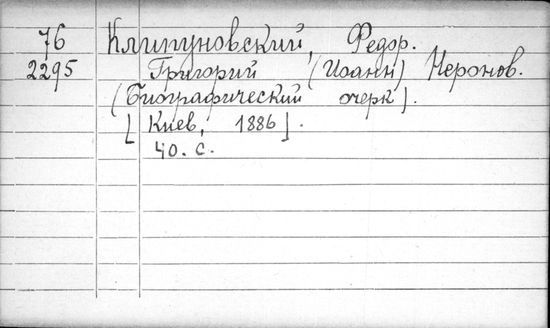 76 Клипуновский, Федор.
2295 Григорий (Иоанн) Неронов.
(Биографический очерк).
[Киев, 1886].
40. с.